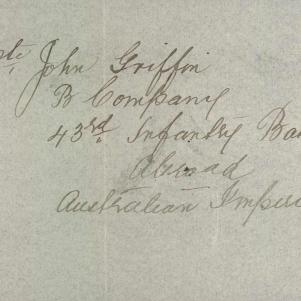 John Griffin
B Company
43rd Infantry
Abroad
Australian